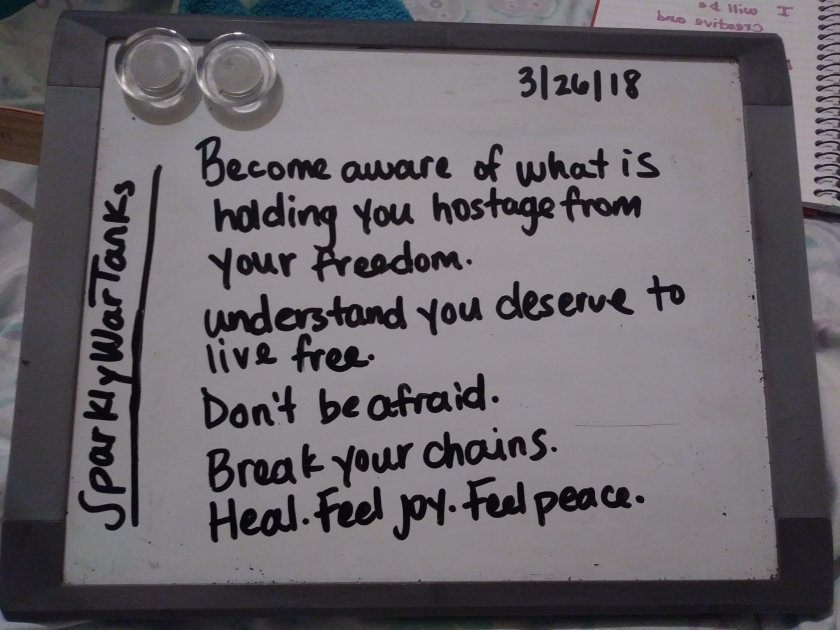 3/26/18
Become aware of what is
holding you hostage from
your freedom.
understand you deserve to
live free.
Don't be afraid.
Break your chains.
Heal. Feel joy. Feel peace.
SparklyWarTanks
I will be
creative and